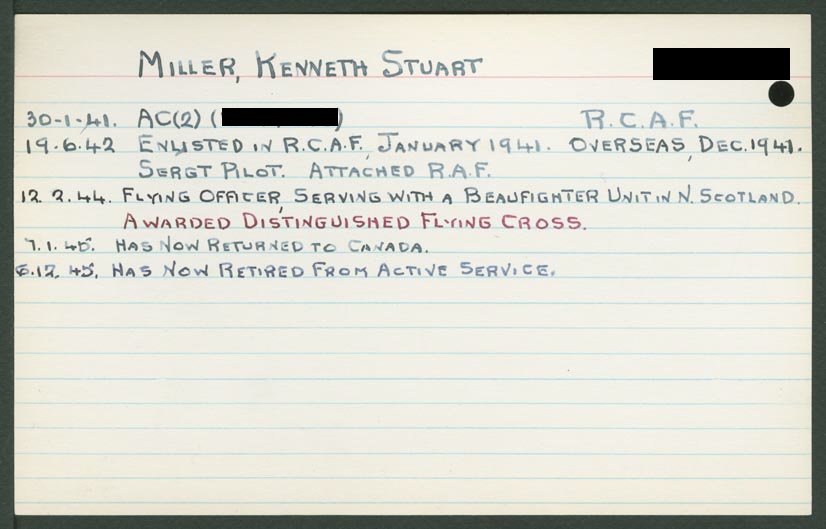 MILLER, KENNETH STUART
30-1-41. AC(2) ( ) R.C.A.F.
19.6.42 ENLISTED IN R.C.A.F., JANUARY 1941. OVERSEAS, DEC. 1941.
SERGT PILOT. ATTACHED R.A.F.
12.2.44. FLYING OFFICER, SERVING WITH A BEAUFIGHTER UNIT IN N. SCOTLAND.
AWARDED DISTINGUISHED FLYING CROSS.
7.1.45. HAS NOW RETURNED TO CANADA.
6.12.45. HAS NOW RETIRED FROM ACTIVE SERVICE.